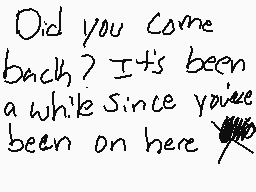 Did you come
back? It's been
a while since you've
been on here